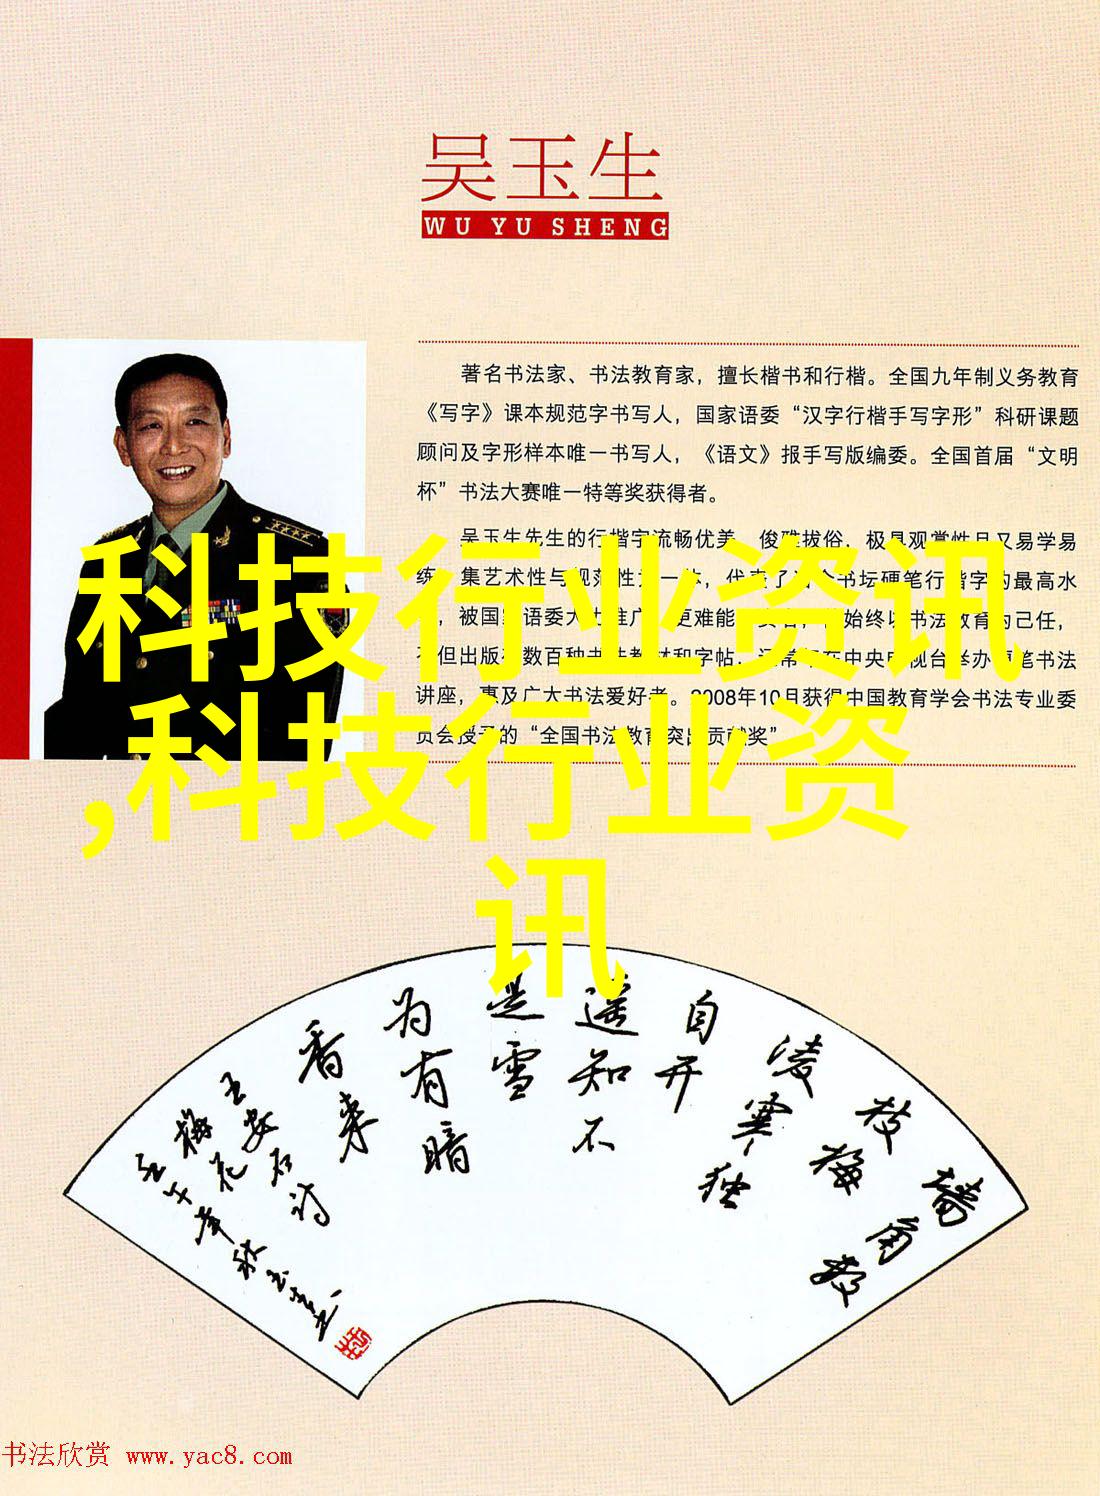 吴玉生
WU YU SHENG
著名书法家、书法教育家，擅长楷书和行楷。全国九年制义务教育
《写字》课本规范字书写人，国家语委“汉字行楷手写字形”科研课题
顾问及字形样本唯一书写人，《语文》报手写版编委。全国首届“文明
杯”书法大赛唯一特等奖获得者。
吴玉生先生的行楷字流畅优美、俊雅拔俗，极具观赏性且又易学易
练，集艺术性与规范性于一体，代表了
书坛硬笔行楷字的最高水
，被国家语委大力推广。更难能
始终以书法教育为己任，
不但出版有数百种书法教材和字帖，还常年在中央电视台举办硬笔书法
讲座，惠及广大书法爱好者。2008年10月获得中国教育学会书法专业委
员会授予的“全国书法教育突出贡献奖”
科技行业资讯
,科技行业资
讯
墙角数
枝梅
凌寒独
自开
遥知不
是雪
为有暗
香来
王安石诗
梅花
壬午年秋玉生书
书法欣赏 www.yac8.com